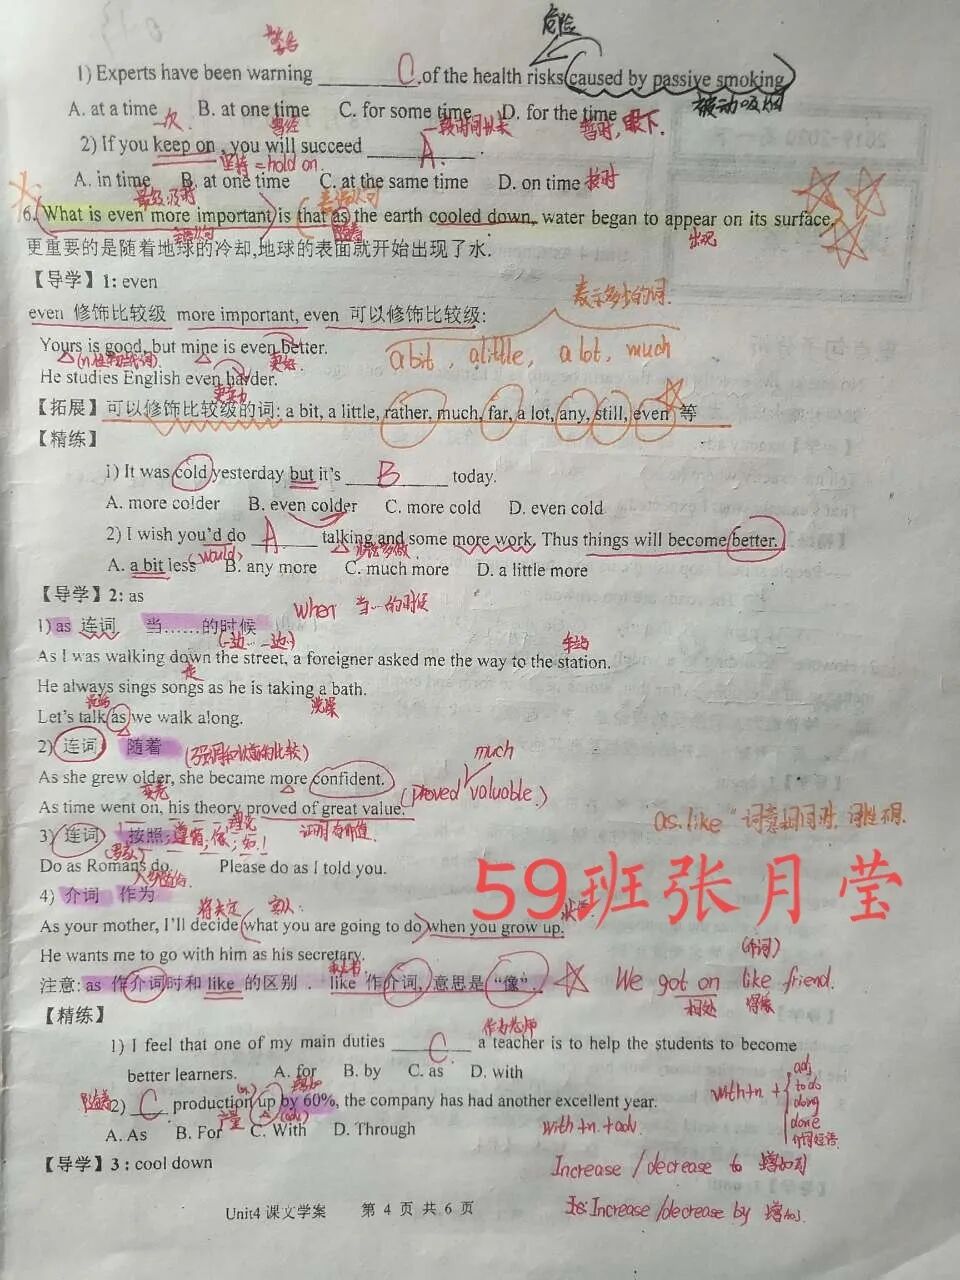 警告 危险
1) Experts have been warning ____C____ of the health risks caused by passive smoking
A. at a time B. at one time C. for some time D. for the time 被动吸烟
一次 曾经 一段时间以来 暂时，眼下.
2) If you keep on , you will succeed ____A____.
坚持 = hold on.
A. in time B. at one time C. at the same time D. on time 按时
表语从句
6. What is even more important is that as the earth cooled down, water began to appear on its surface.
主语从句 随着 出现
更重要的是随着地球的冷却,地球的表面就开始出现了水.
【导学】1: even
表示多少的词.
even 修饰比较级 more important, even 可以修饰比较级:
Yours is good, but mine is even better.
更好 a bit , a little, a lot, much
He studies English even harder.
【拓展】可以修饰比较级的词: a bit, a little, rather, much, far, a lot, any, still, even 等
【精练】
1) It was cold yesterday but it's ____B____ today.
A. more colder B. even colder C. more cold D. even cold
2) I wish you'd do ____A____ talking and some more work. Thus things will become better.
(would)
A. a bit less B. any more C. much more D. a little more
【导学】2: as
when 当…的时候
1) as 连词 当……的时候
(一边…一边…) 车站
As I was walking down the street, a foreigner asked me the way to the station.
走
He always sings songs as he is taking a bath.
洗澡
Let's talk as we walk along.
2) 连词 随着
much
As she grew older, she became more confident.
变老 (proved valuable.)
As time went on, his theory proved of great value.
as. like "词意相同时, 词性不同.
3) 连词 按照;
Do as Romans do. Please do as I told you.
入乡随俗
59班张月莹
4) 介词 作为
将决定
As your mother, I'll decide what you are going to do when you grow up.
He wants me to go with him as his secretary.
(介词)
注意: as 作介词时和 like 的区别. like 作介词, 意思是 "像".
We got on like friend.
相处
【精练】
作为老师
1) I feel that one of my main duties ____C____ a teacher is to help the students to become
better learners. A. for B. by C. as D. with
随着 (n) 增加
2) __C__ production up by 60%, the company has had another excellent year.
产量 (adv)
with+n + adj. to do doing done 介词短语
A. As B. For C. With D. Through
with+n + adv.
【导学】3 : cool down
Increase / decrease to 增加到
Increase /decrease by 增加了
Unit4 课文学案 第 4 页 共 6 页